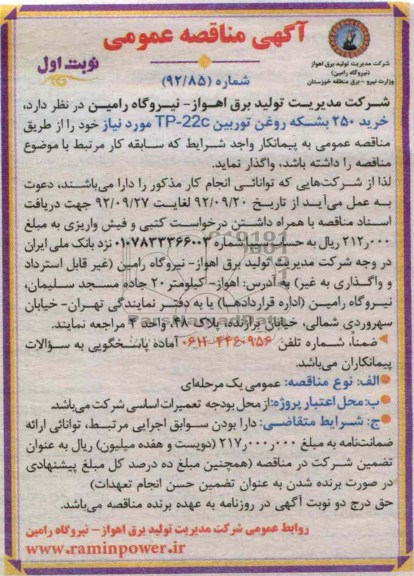 آگهی مناقصه عمومی
شرکت مدیریت تولید برق اهواز
(نیروگاه رامین)
وزارت نیرو - برق منطقه خوزستان
نوبت اول
شماره (۹۲/۸۵)
شرکت مدیریت تولید برق اهواز- نیروگاه رامین در نظر دارد،
خرید ۲۵۰ بشکه روغن توربین TP-22c مورد نیاز خود را از طریق
مناقصه عمومی به پیمانکار واجد شرایط که سابقه کار مرتبط با موضوع
مناقصه را داشته باشد، واگذار نماید.
لذا از شرکت‌هایی که توانائی انجام کار مذکور را دارا می‌باشند، دعوت
به عمل می‌آید از تاریخ ۹۲/۰۹/۲۰ لغایت ۹۲/۰۹/۲۷ جهت دریافت
اسناد مناقصه با همراه داشتن درخواست کتبی و فیش واریزی به مبلغ
۲۱۲ر۰۰۰ ریال به حساب سیبا شماره ۰۱۰۷۸۳۳۳۶۶۰۰۳ نزد بانک ملی ایران
در وجه شرکت مدیریت تولید برق اهواز- نیروگاه رامین (غیر قابل استرداد
و واگذاری به غیر) به آدرس: اهواز- کیلومتر ۲۰ جاده مسجد سلیمان،
نیروگاه رامین (اداره قراردادها) یا به دفتر نمایندگی تهران- خیابان
سهروردی شمالی، خیابان برازنده، پلاک ۴۸، واحد ۴ مراجعه نمایند.
ضمناً، شماره تلفن ۴۴۶۰۹۵۶-۰۶۱۲ آماده پاسخگویی به سؤالات
پیمانکاران می‌باشد.
الف: نوع مناقصه: عمومی یک مرحله‌ای
ب: محل اعتبار پروژه: از محل بودجه تعمیرات اساسی شرکت می‌باشد.
ج: شرایط متقاضی: دارا بودن سوابق اجرایی مرتبط، توانائی ارائه
ضمانت‌نامه به مبلغ ۲۱۷ر۰۰۰ر۰۰۰ (دویست و هفده میلیون) ریال به عنوان
تضمین شرکت در مناقصه (همچنین مبلغ ده درصد کل مبلغ پیشنهادی
در صورت برنده شدن به عنوان تضمین حسن انجام تعهدات)
حق درج دو نوبت آگهی در روزنامه به عهده برنده مناقصه می‌باشد.
روابط عمومی شرکت مدیریت تولید برق اهواز- نیروگاه رامین
www.raminpower.ir